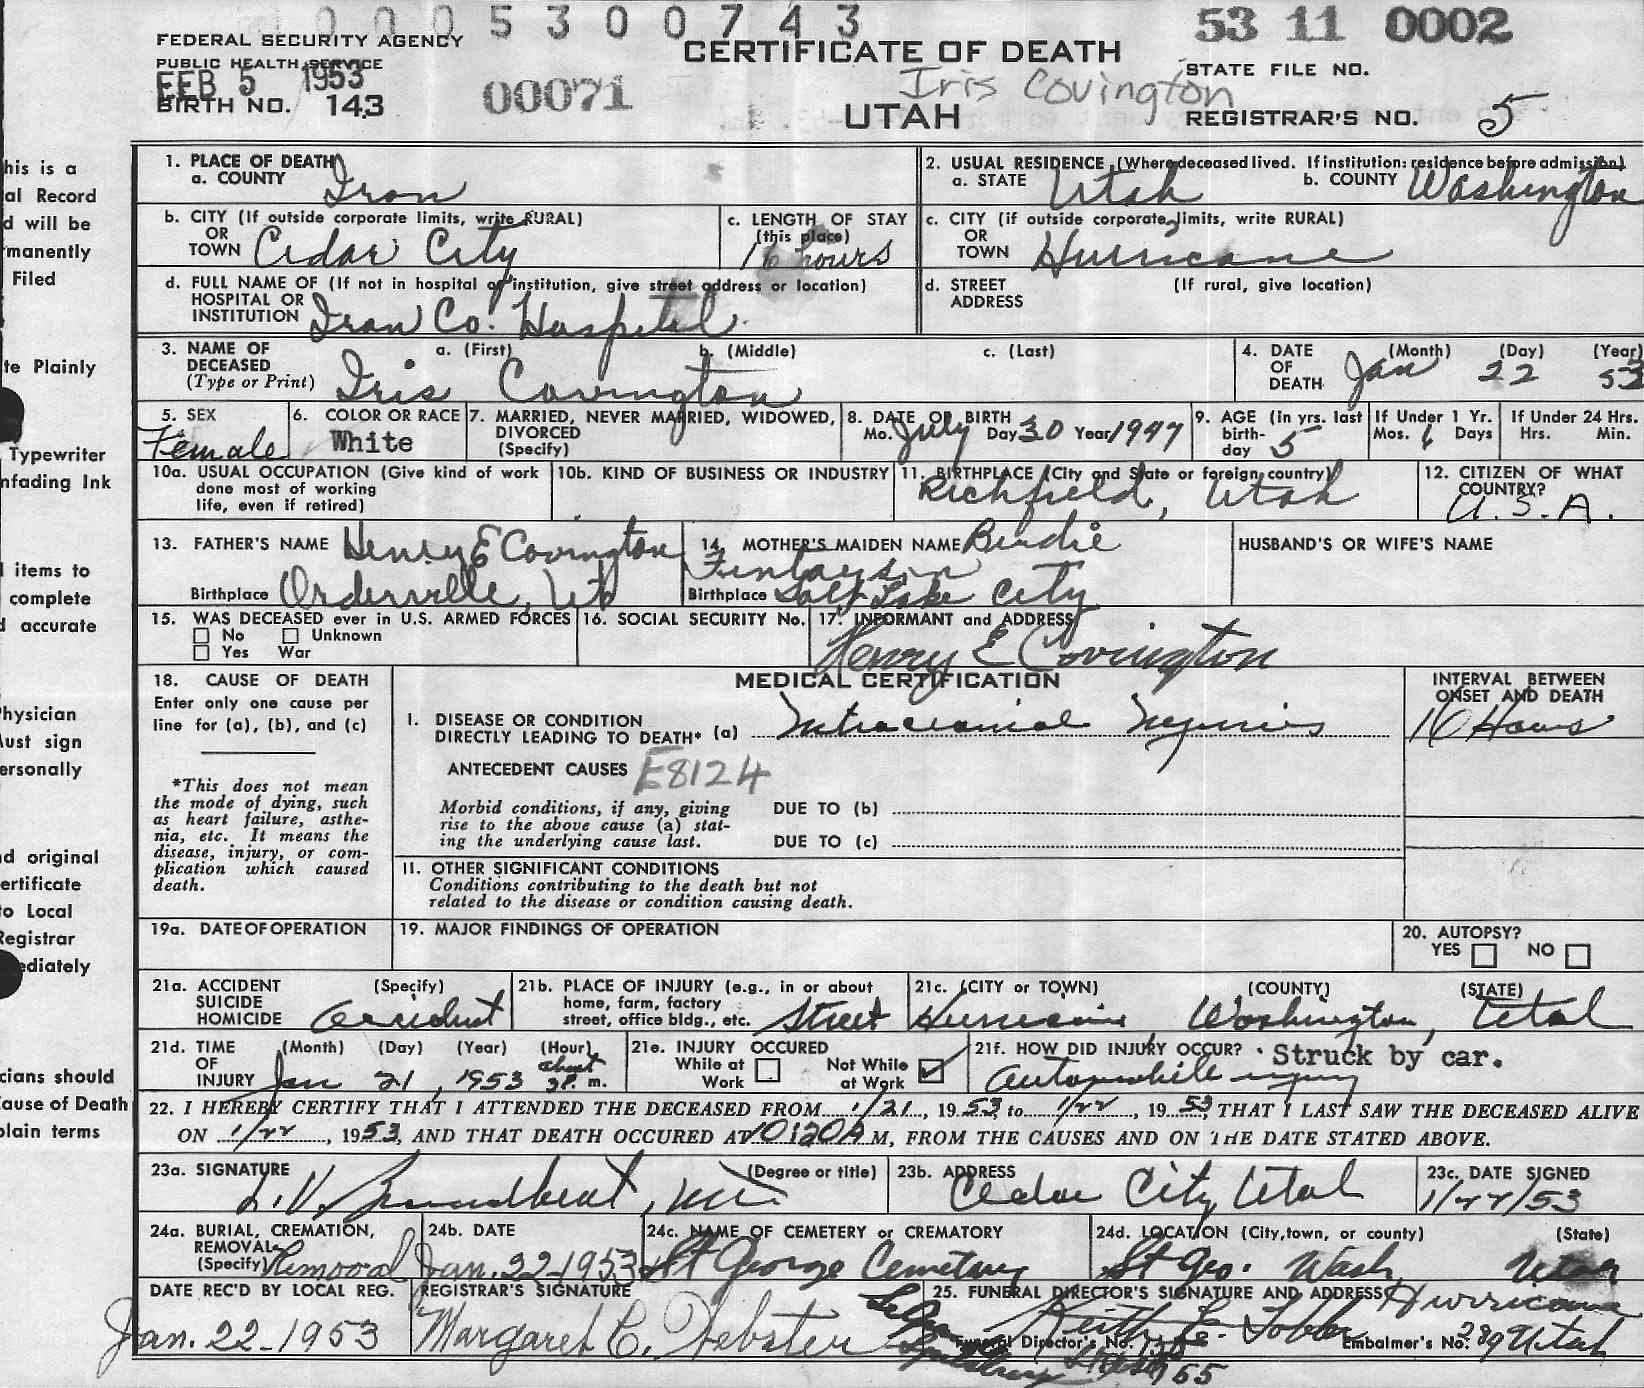 0 0 0 5 3 0 0 7 4 3
53 11 0002
FEDERAL SECURITY AGENCY
PUBLIC HEALTH SERVICE
FEB 5 1953
BIRTH NO. 143
00071
CERTIFICATE OF DEATH
Iris Covington
UTAH
STATE FILE NO.
REGISTRAR'S NO. 5
his is a
al Record
d will be
manently
Filed
te Plainly
Typewriter
nfading Ink
l items to
complete
d accurate
Physician
Must sign
ersonally
nd original
ertificate
to Local
Registrar
ediately
cians should
Cause of Death
plain terms
1. PLACE OF DEATH
a. COUNTY Iron
2. USUAL RESIDENCE (Where deceased lived. If institution: residence before admission)
a. STATE Utah b. COUNTY Washington
b. CITY (If outside corporate limits, write RURAL)
OR
TOWN Cedar City
c. LENGTH OF STAY
(this place)
16 hours
c. CITY (if outside corporate limits, write RURAL)
OR
TOWN Hurricane
d. FULL NAME OF (If not in hospital or institution, give street address or location)
HOSPITAL OR
INSTITUTION Iron Co. Hospital
d. STREET (If rural, give location)
ADDRESS
3. NAME OF DECEASED (Type or Print)
a. (First) b. (Middle) c. (Last)
Iris Covington
4. DATE OF DEATH
(Month) (Day) (Year)
Jan 22 53
5. SEX
Female
6. COLOR OR RACE
White
7. MARRIED, NEVER MARRIED, WIDOWED,
DIVORCED
(Specify)
8. DATE OF BIRTH
Mo. July Day 30 Year 1947
9. AGE (in yrs. last
birth-
day 5
If Under 1 Yr.
Mos. Days
If Under 24 Hrs.
Hrs. Min.
10a. USUAL OCCUPATION (Give kind of work
done most of working
life, even if retired)
10b. KIND OF BUSINESS OR INDUSTRY
11. BIRTHPLACE (City and State or foreign country)
Richfield, Utah
12. CITIZEN OF WHAT
COUNTRY?
U.S.A.
13. FATHER'S NAME Henry E Covington
Birthplace Orderville, Ut
14. MOTHER'S MAIDEN NAME Birdie
Finlayson
Birthplace Salt Lake City
HUSBAND'S OR WIFE'S NAME
15. WAS DECEASED ever in U.S. ARMED FORCES
No Unknown
Yes War
16. SOCIAL SECURITY No.
17. INFORMANT and ADDRESS
Henry E Covington
18. CAUSE OF DEATH
Enter only one cause per
line for (a), (b), and (c)
*This does not mean
the mode of dying, such
as heart failure, asthe-
nia, etc. It means the
disease, injury, or com-
plication which caused
death.
MEDICAL CERTIFICATION
INTERVAL BETWEEN
ONSET AND DEATH
I. DISEASE OR CONDITION
DIRECTLY LEADING TO DEATH* (a) Intracranial Injuries
16 Hours
ANTECEDENT CAUSES E8124
Morbid conditions, if any, giving
rise to the above cause (a) stat-
ing the underlying cause last.
DUE TO (b)
DUE TO (c)
II. OTHER SIGNIFICANT CONDITIONS
Conditions contributing to the death but not
related to the disease or condition causing death.
19a. DATE OF OPERATION
19. MAJOR FINDINGS OF OPERATION
20. AUTOPSY?
YES NO
21a. ACCIDENT (Specify)
SUICIDE
HOMICIDE Accident
21b. PLACE OF INJURY (e.g., in or about
home, farm, factory
street, office bldg., etc. Street
21c. (CITY or TOWN) (COUNTY) (STATE)
Hurricane Washington, Utah
21d. TIME OF INJURY
(Month) (Day) (Year) (Hour)
Jan 21, 1953 about 3 P. m.
21e. INJURY OCCURED
While at Work
Not While at Work ✓
21f. HOW DID INJURY OCCUR? Struck by car.
Automobile injury
22. I HEREBY CERTIFY THAT I ATTENDED THE DECEASED FROM 1/21, 1953 to 1/22, 1953 THAT I LAST SAW THE DECEASED ALIVE
ON 1/22, 1953, AND THAT DEATH OCCURED AT M, FROM THE CAUSES AND ON THE DATE STATED ABOVE.
23a. SIGNATURE (Degree or title)
L.V. MD
23b. ADDRESS
Cedar City, Utah
23c. DATE SIGNED
1/22/53
24a. BURIAL, CREMATION,
REMOVAL
(Specify) Removal
24b. DATE
Jan. 22-1953
24c. NAME OF CEMETERY or CREMATORY
St George Cemetery
24d. LOCATION (City, town, or county) (State)
St Geo. Wash. Utah
DATE REC'D BY LOCAL REG.
Jan. 22-1953
REGISTRAR'S SIGNATURE
Margaret C. Webster
25. FUNERAL DIRECTOR'S SIGNATURE AND ADDRESS Hurricane
Keith Utah
Funeral Director's No.
Embalmer's No.